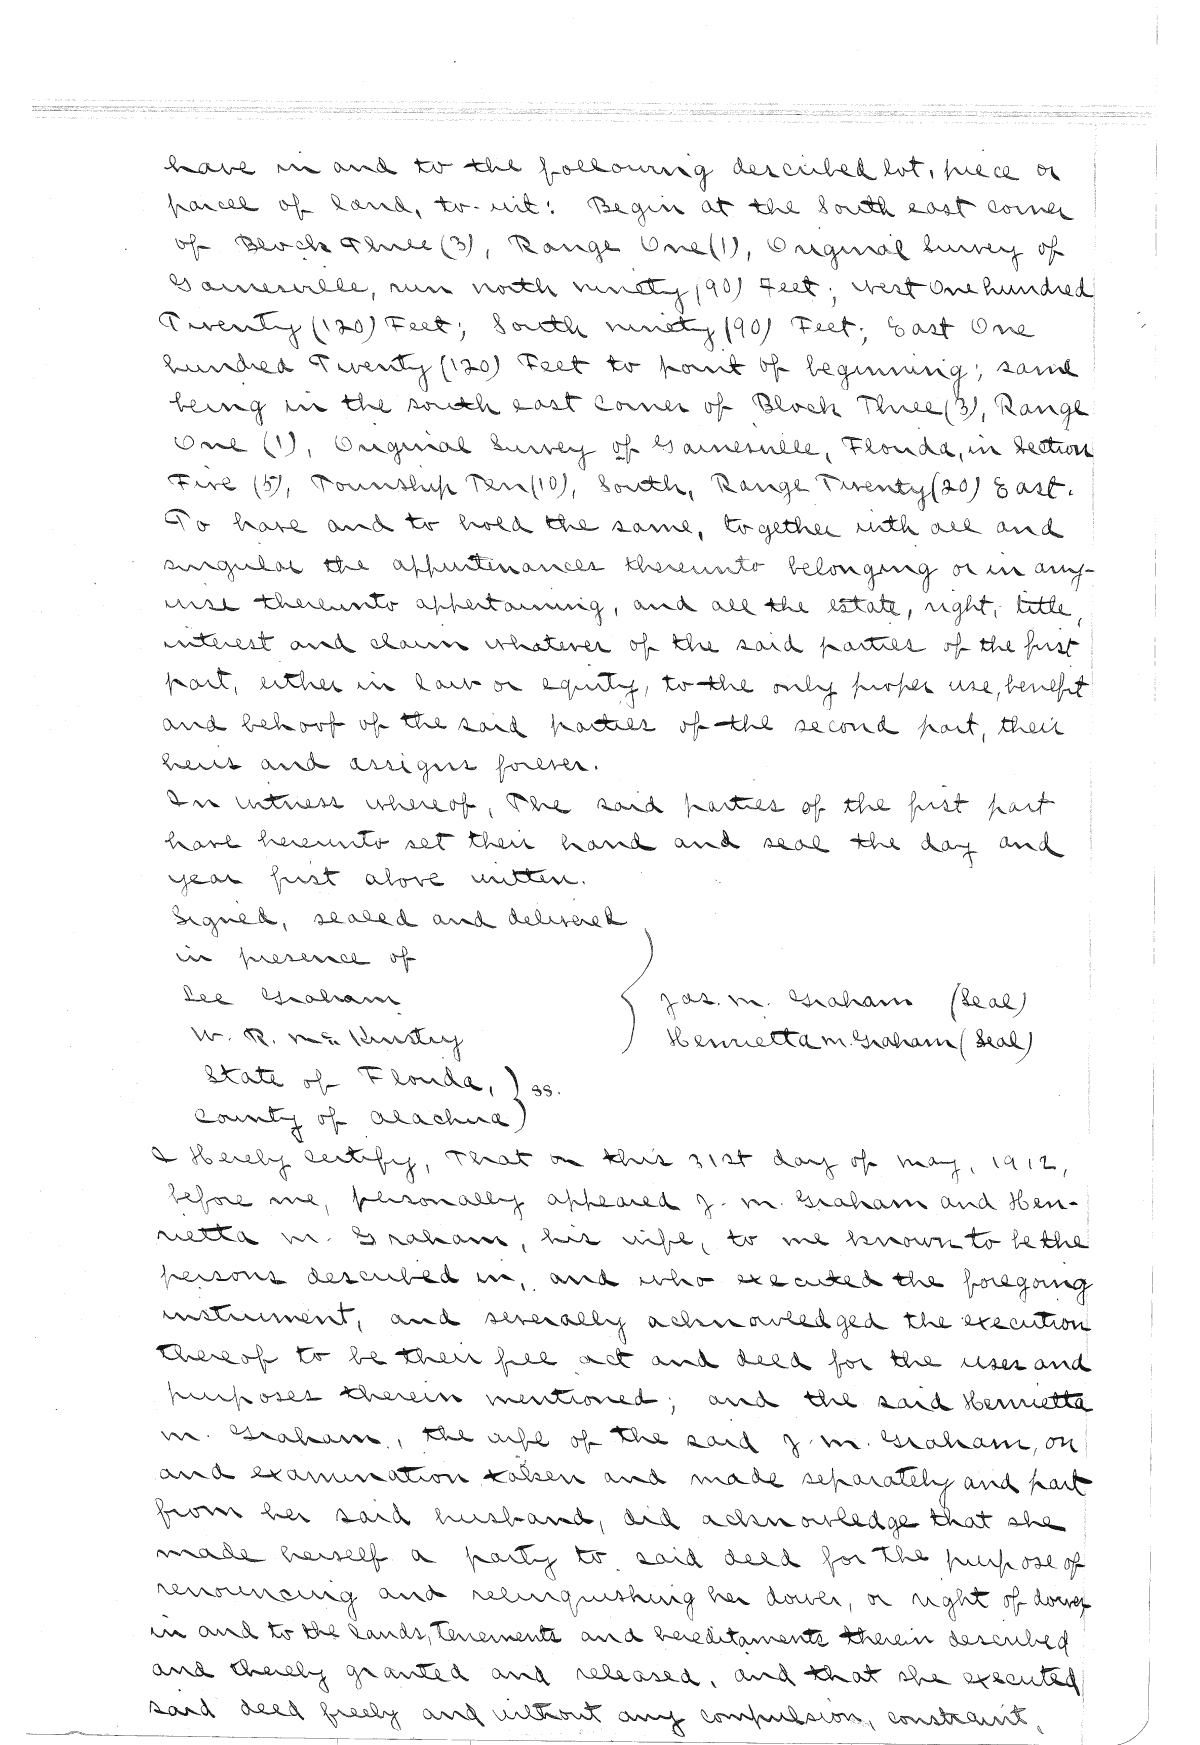 have in and to the following described lot, piece or
parcel of land, to-wit: Begin at the South east corner
of Block Three (3), Range One (1), Original Survey of
Gainesville, run north ninety (90) Feet; west One hundred
Twenty (120) Feet; South ninety (90) Feet; East One
hundred Twenty (120) Feet to point of beginning; same
being in the south east corner of Block Three (3), Range
One (1), Original Survey of Gainesville, Florida, in Section
Five (5), Township Ten (10), South, Range Twenty (20) East.
To have and to hold the same, together with all and
singular the appurtenances thereunto belonging or in any-
wise thereunto appertaining, and all the estate, right, title,
interest and claim whatever of the said parties of the first
part, either in law or equity, to the only proper use, benefit
and behoof of the said parties of the second part, their
heirs and assigns forever.
In witness whereof, The said parties of the first part
have hereunto set their hand and seal the day and
year first above written.
Signed, sealed and delivered
in presence of
Lee Graham
Jas. M. Graham (Seal)
W. R. McKinstry
Henrietta M. Graham (Seal)
State of Florida, } ss.
County of Alachua
I Hereby certify, That on this 31st day of May, 1912,
before me, personally appeared J. M. Graham and Hen-
rietta M. Graham, his wife, to me known to be the
persons described in, and who executed the foregoing
instrument, and severally acknowledged the execution
thereof to be their free act and deed for the uses and
purposes therein mentioned; and the said Henrietta
M. Graham, the wife of the said J. M. Graham, on
and examination taken and made separately and part
from her said husband, did acknowledge that she
made herself a party to said deed for the purpose of
renouncing and relinquishing her dower, or right of dower
in and to the lands, tenements and hereditaments therein described
and thereby granted and released, and that she executed
said deed freely and without any compulsion, constraint,